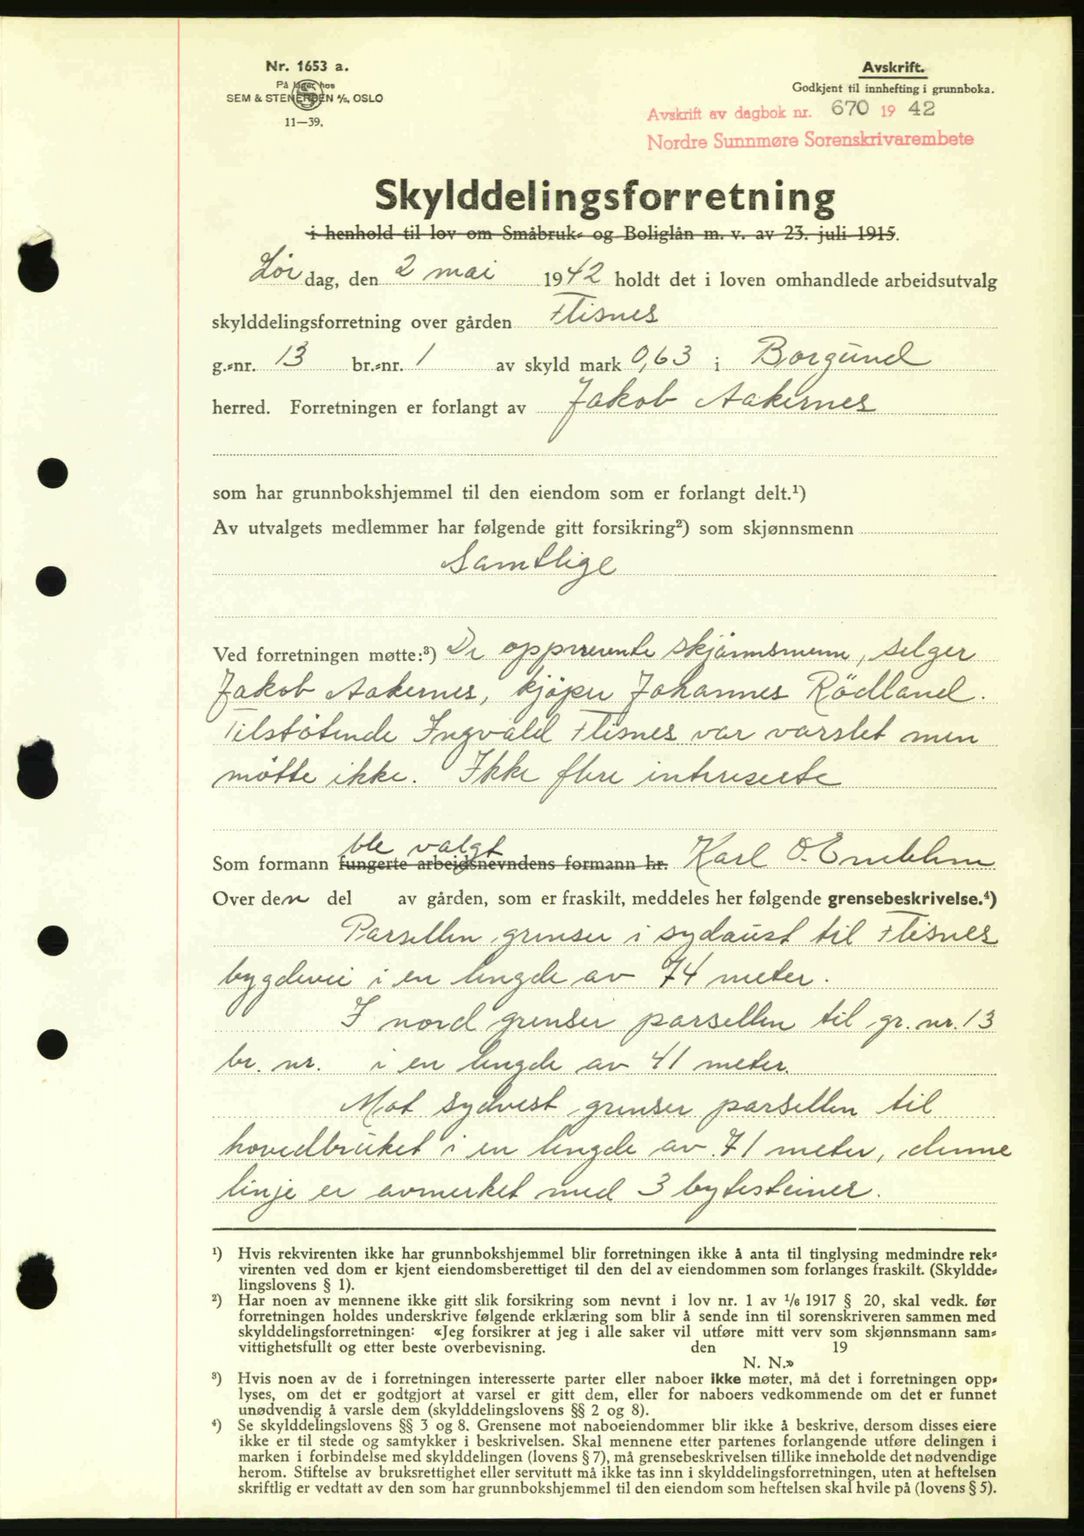 Nr. 1653 a.
På lager hos
SEM & STENERSEN A/S, OSLO
11—39.
Avskrift.
Godkjent til innhefting i grunnboka.
Avskrift av dagbok nr. 670 19 42
Nordre Sunnmøre Sorenskrivarembete
Skylddelingsforretning
i henhold til lov om Småbruk- og Boliglån m. v. av 23. juli 1915.
Lør dag, den 2 mai 1942 holdt det i loven omhandlede arbeidsutvalg
skylddelingsforretning over gården Flisnes
g.-nr. 13 br.-nr. 1 av skyld mark 0,63 i Borgund
herred. Forretningen er forlangt av Jakob Aakernes
som har grunnbokshjemmel til den eiendom som er forlangt delt.¹)
Av utvalgets medlemmer har følgende gitt forsikring²) som skjønnsmenn
Samtlige
Ved forretningen møtte:³) De oppnevnte skjønnsmenn, selger
Jakob Aakernes, kjøper Johannes Rødland.
Tilstøtende Ingvald Flisnes var varslet men
møtte ikke. Ikke flere intereserte
ble valgt
Som formann fungerte arbeidsnevndens formann hr. Karl O. Emblem
Over den del av gården, som er fraskilt, meddeles her følgende grensebeskrivelse.⁴)
Parsellen grenser i sydaust til Flisnes
bygdevei i en lengde av 74 meter.
I nord grenser parsellen til gr. nr. 13
br. nr. i en lengde av 41 meter.
Mot sydvest grenser parsellen til
hovedbruket i en lengde av 71 meter, denne
linje er avmerket med 3 bytesteiner.
¹) Hvis rekvirenten ikke har grunnbokshjemmel blir forretningen ikke å anta til tinglysing medmindre rek-
virenten ved dom er kjent eiendomsberettiget til den del av eiendommen som forlanges fraskilt. (Skyldde-
lingslovens § 1).
²) Har noen av mennene ikke gitt slik forsikring som nevnt i lov nr. 1 av 1/6 1917 § 20, skal vedk. før
forretningen holdes underskrive følgende erklæring som blir å sende inn til sorenskriveren sammen med
skylddelingsforretningen: «Jeg forsikrer at jeg i alle saker vil utføre mitt verv som skjønnsmann sam-
vittighetsfullt og etter beste overbevisning. den 19
N. N.»
³) Hvis noen av de i forretningen interesserte parter eller naboer ikke møter, må det i forretningen opp-
lyses, om det er godtgjort at varsel er gitt dem, eller for naboers vedkommende om det er funnet
unødvendig å varsle dem (skylddelingslovens §§ 2 og 8).
⁴) Se skylddelingslovens §§ 3 og 8. Grensene mot naboeiendommer blir ikke å beskrive, dersom disses eiere
ikke er til stede og samtykker i beskrivelsen. Skal mennene etter partenes forlangende utføre delingen i
marken i forbindelse med skylddelingen (lovens § 7), må grensebeskrivelsen tillike inneholde det nødvendige
herom. Stiftelse av bruksrettighet eller servitutt må ikke tas inn i skylddelingsforretningen, uten at heftelsen
skriftlig er vedtatt av den som har grunnbokshjemmel til den eiendom som heftelsen skal hvile på (lovens § 5).